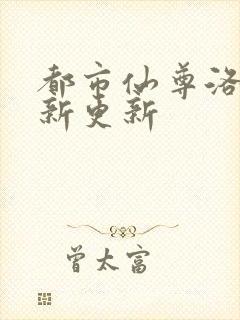 都市仙尊洛
新更新
曾太富